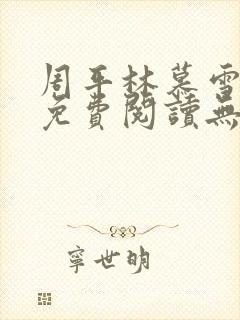 周平林慕雪
免費閱讀無
寧世明